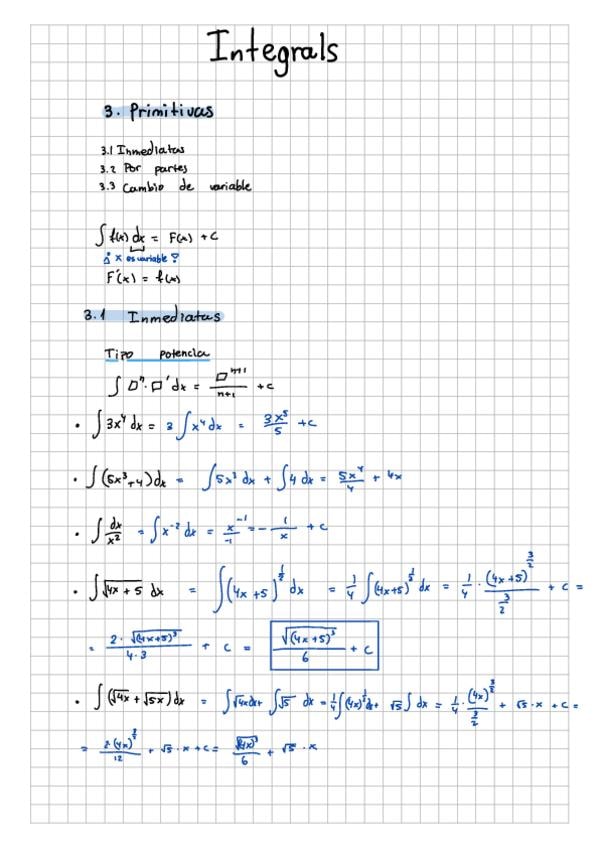 Integrals
3. Primitivas
3.1 Inmediatas
3.2 Por partes
3.3 Cambio de variable
∫ f(x) dx = F(x) + c
¿ x es variable ?
F'(x) = f(x)
3.1 Inmediatas
Tipo potencia
∫ □ⁿ · □' dx = □ⁿ⁺¹/(n+1) + c
• ∫ 3x⁴ dx = 3 ∫ x⁴ dx = 3x⁵/5 + c
• ∫ (5x³ + 4) dx = ∫ 5x³ dx + ∫ 4 dx = 5x⁴/4 + 4x
• ∫ dx/x² = ∫ x⁻² dx = x⁻¹/-1 = - 1/x + c
• ∫ √(4x + 5) dx = ∫ (4x + 5)^(1/2) dx = 1/4 ∫ (4x+5)^(1/2) dx = 1/4 · (4x+5)^(3/2)/(3/2) + c =
= 2 · √(4x+5)³/(4·3) + c = √(4x+5)³/6 + c
• ∫ (√4x + √5x) dx = ∫ √4x dx + ∫ √5 dx = 1/4 ∫ (4x)^(1/2) dx + √5 ∫ dx = 1/4 · (4x)^(3/2)/(3/2) + √5 · x + c =
= 2·(4x)^(3/2)/12 + √5 · x + c = √(4x)³/6 + √5 · x